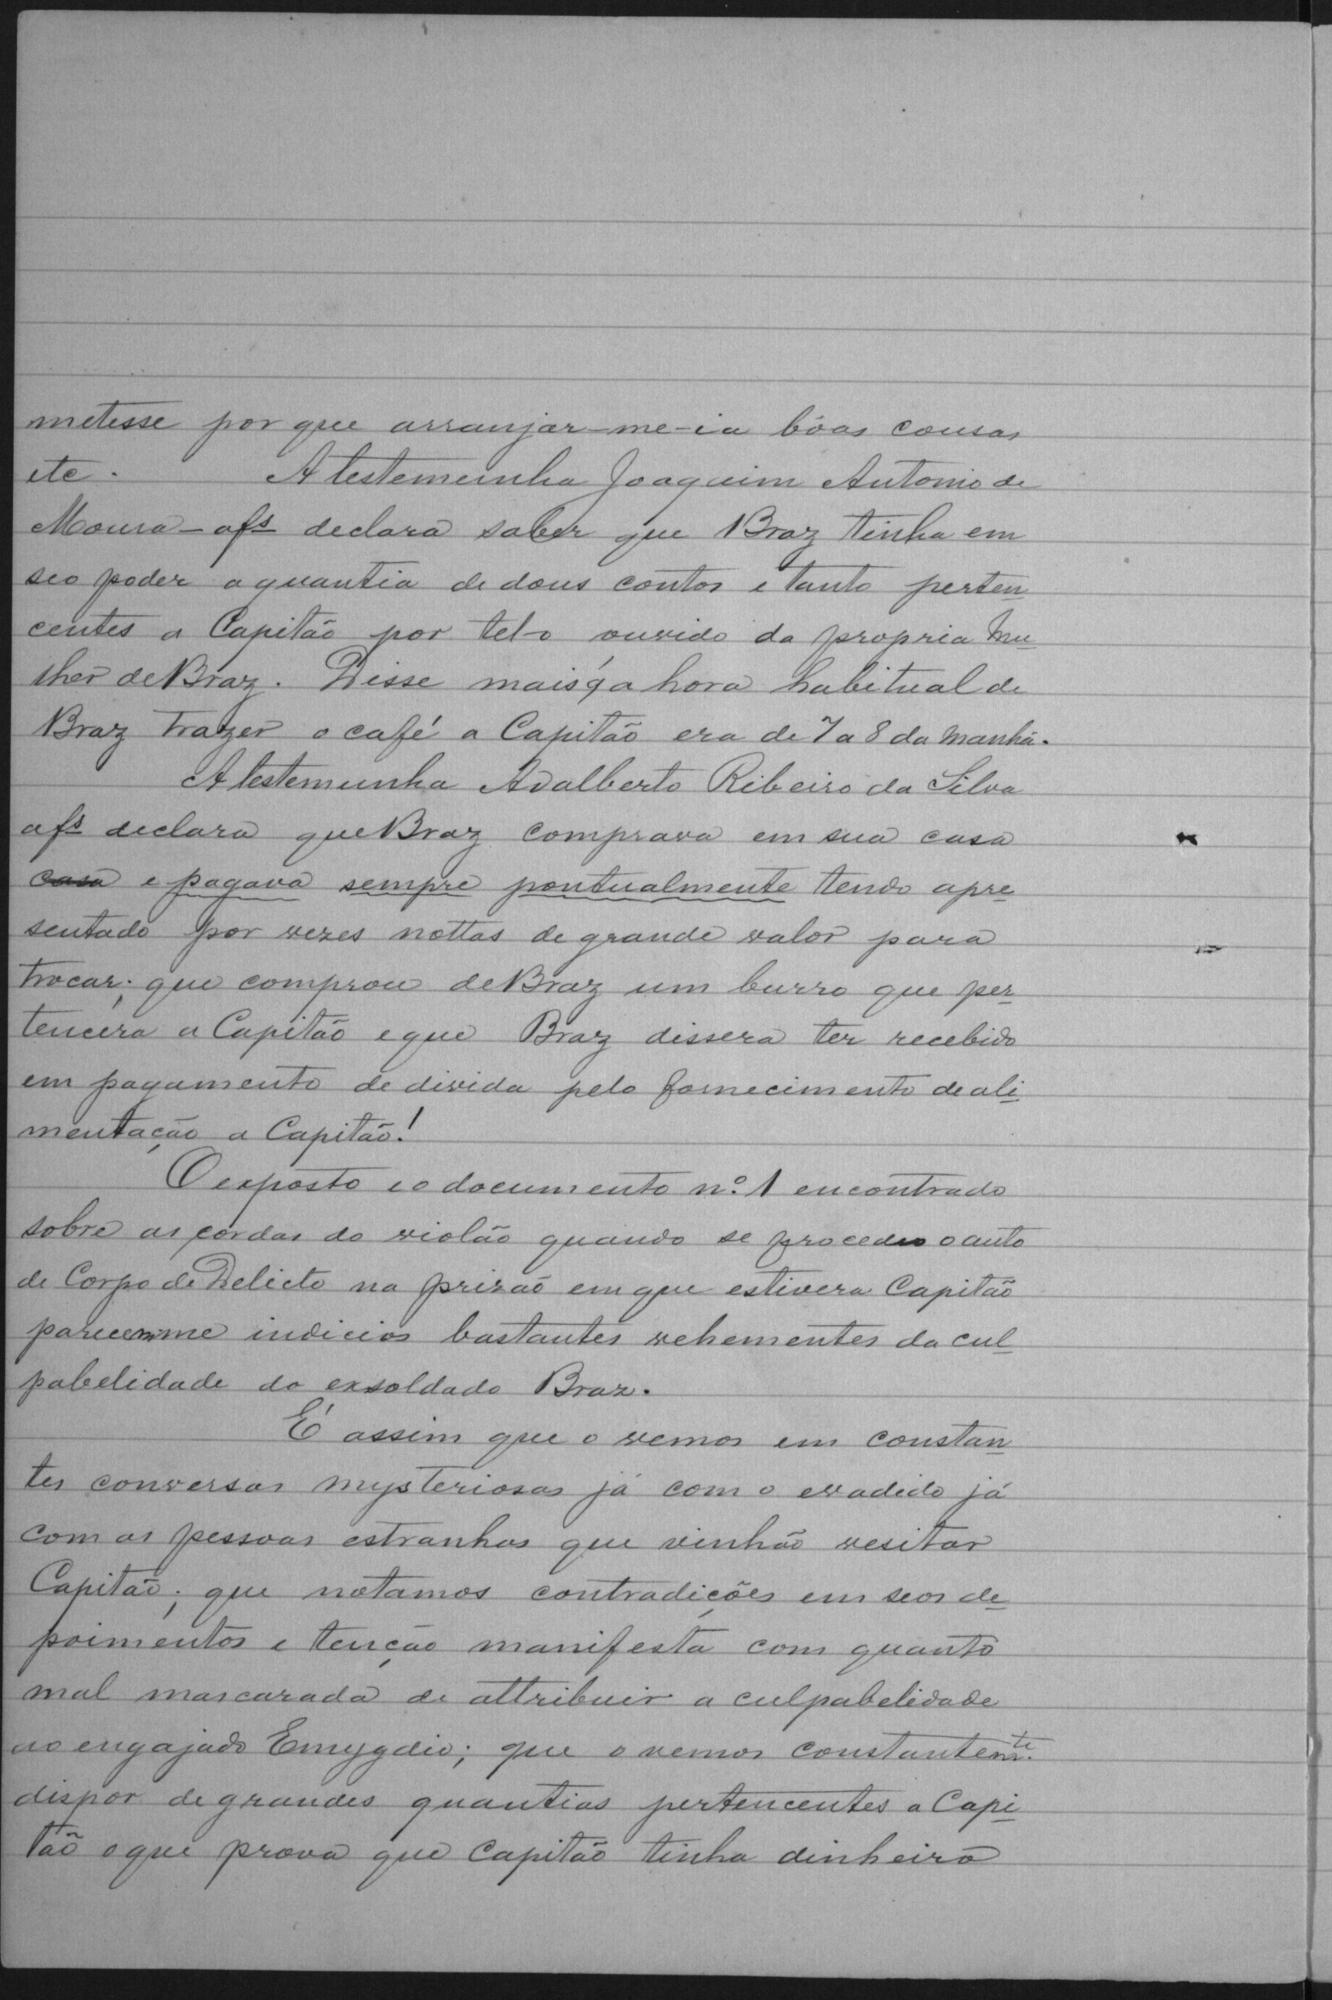 metesse por que arranjar-me-ia bôas cousas
etc. A testemunha Joaquim Antonio de
Moura - afs declara saber que Braz tinha em
seo poder a quantia de dous contos e tanto perten-
centes a Capitão por tel-o ouvido da propria mu-
lher de Braz. Disse mais q' a hora habitual de
Braz trazer o café a Capitão era de 7 a 8 da manhã.
A testemunha Adalberto Ribeiro da Silva
afs declara que Braz comprava em sua casa
casa e pagava sempre pontualmente tendo apre-
sentado por vezes nottas de grande valor para
trocar; que comprou de Braz um burro que per-
tencera a Capitão e que Braz dissera ter recebido
em pagamento de divida pelo fornecimento de ali-
mentação a Capitão!
O exposto e o documento nº 1 encontrado
sobre as cordas do violão quando se procedeo o auto
de Corpo de Delicto na prizão em que estivera Capitão
parecem me indicios bastantes vehementes da cul-
pabelidade do ex soldado Braz.
É assim que o vemos em constan-
tes conversas mysteriosas já com o evadido já
com as pessoas estranhas que vinhão vesitar
Capitão; que notamos contradicções em seos de-
poimentos e tenção manifesta com quanto
mal mascarada de attribuir a culpabelidade
ao engajado Emygdio; que o vemos constantemte.
dispor de grandes quantias pertencentes a Capi-
tão o que prova que Capitão tinha dinheiro